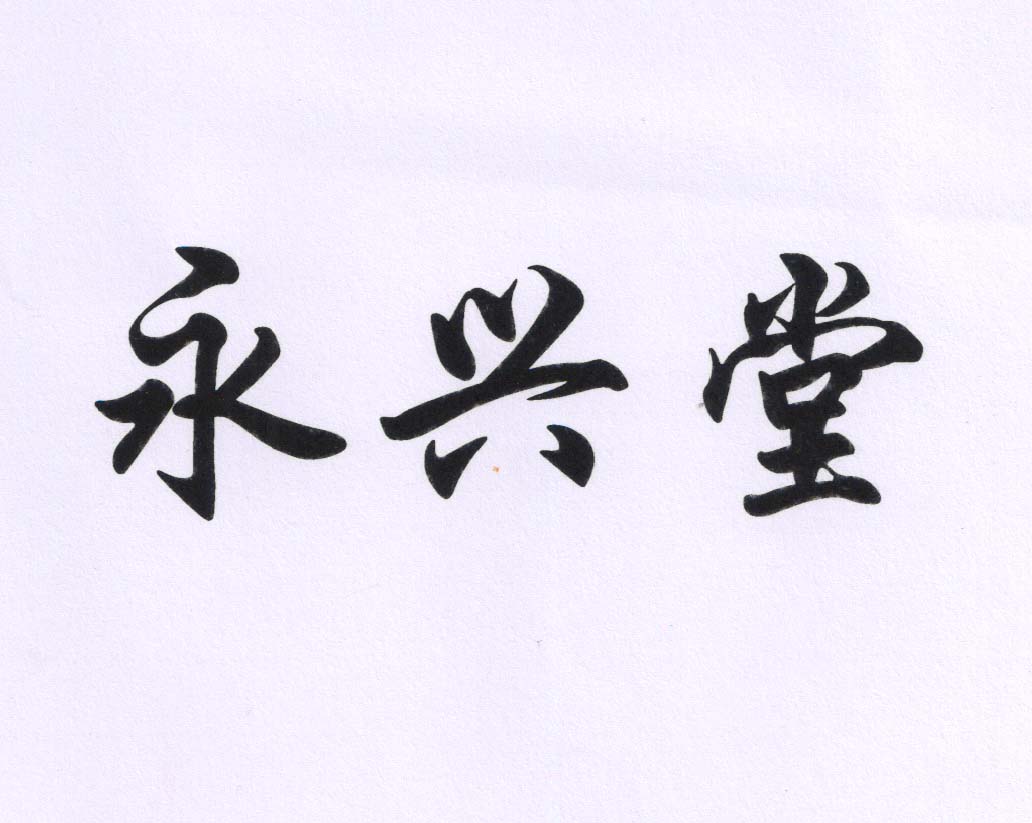 永兴堂